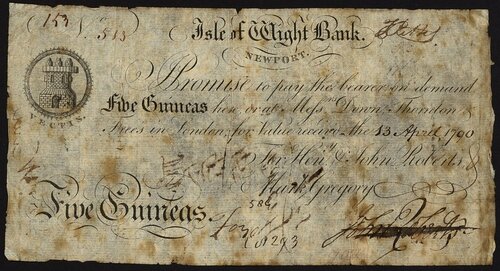 153 No. 513 Isle of Wight Bank.
NEWPORT.
I Promise to pay the bearer on demand
VECTIS.
Five Guineas here or at Messrs. Down Thornton &
Frees in London, for Value receivd the 13 April 1790
For Heny. & John Roberts &
Mark Gregory
Five Guineas.
584
6293